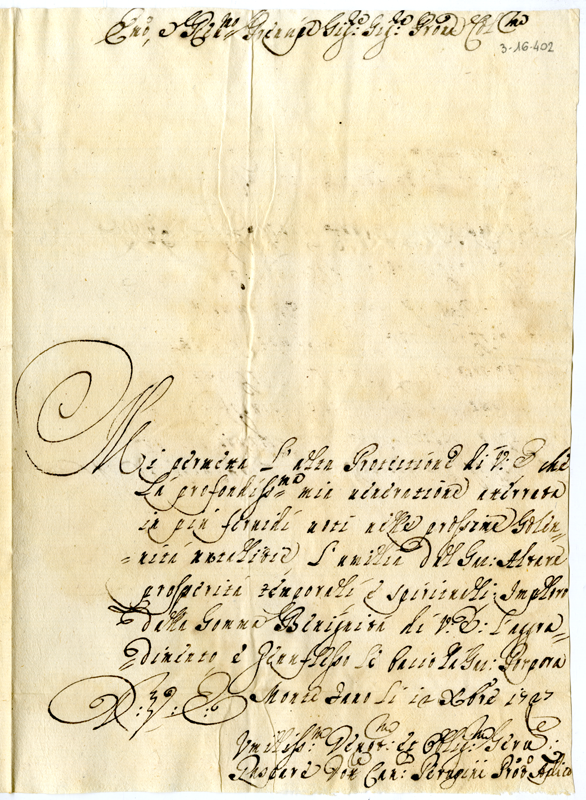 Emo, e Rmo Prencipe Sig:re Sig:re Prone Col:mo
3-16-402
Mi permetta l'alta Protettione di V: E che
la profondiss:ma mia veneratione
in più fervidi voti nelle prossime Solen=
=nità natalitie l'umilia dal Gra: Altare
prosperità temporali e spirituali: Imploro
dalla Somma Benignità di V: E: l'aggra=
=dimento e Genuflesso li bacio la Gra: Porpora
D: V: E: Monte Fano li 10 Xbre 1727
Umiliss:mo Devot: et Oblig:mo Serv:e
Gaspare Can: